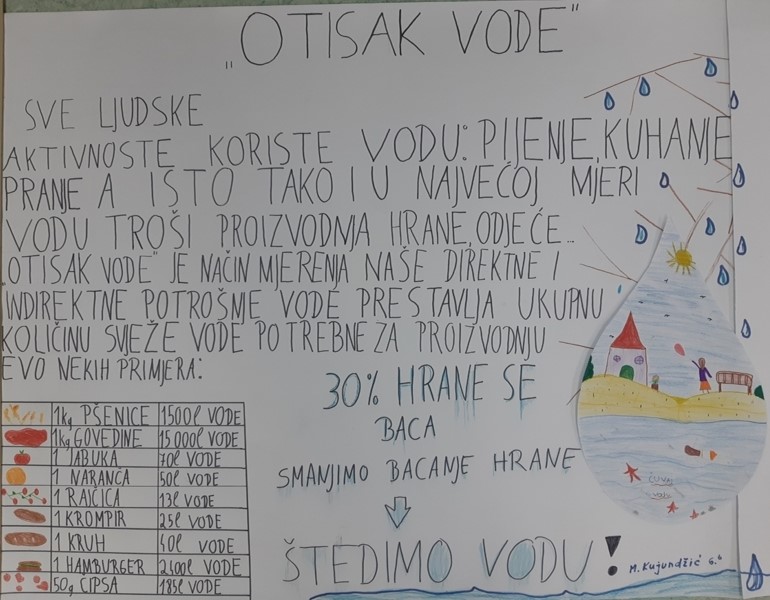 „OTISAK VODE"
SVE LJUDSKE
AKTIVNOSTE KORISTE VODU: PIJENJE, KUHANJE
PRANJE A ISTO TAKO I U NAJVEĆOJ MJERI
VODU TROŠI PROIZVODNJA HRANE, ODJEĆE...
„OTISAK VODE" JE NAČIN MJERENJA NAŠE DIREKTNE I
INDIREKTNE POTROŠNJE VODE PRESTAVLJA UKUPNU
KOLIČINU SVJEŽE VODE POTREBNE ZA PROIZVODNJU
EVO NEKIH PRIMJERA:
30% HRANE SE
BACA
SMANJIMO BACANJE HRANE
ŠTEDIMO VODU!
1kg PŠENICE 1500l VODE
1kg GOVEDINE 15000l VODE
1 JABUKA 70l VODE
1 NARANČA 50l VODE
1 RAJČICA 13l VODE
1 KROMPIR 25l VODE
1 KRUH 40l VODE
1 HAMBURGER 2400l VODE
50g ČIPSA 185l VODE
ČUVAJ
VODU
M. Kujundžić